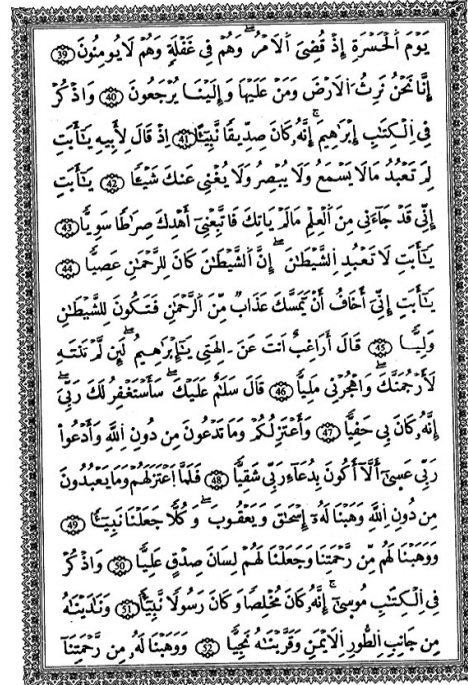 يَوْمَ اَلْحَسْرَةِ إِذْ قُضِيَ اَلَامْرُ وَهُمْ فِي غَفْلَةٍ وَهُمْ لَا يُومِنُونَ 39
إِنَّا نَحْنُ نَرِثُ اَلَارْضَ وَمَنْ عَلَيْهَا وَإِلَيْنَا يُرْجَعُونَ 40 وَاذْكُرْ
فِي اِلْكِتَٰبِ إِبْرَٰهِيمَ إِنَّهُۥ كَانَ صِدِّيقًا نَّبِيٓـًٔا 41 اِذْ قَالَ لِأَبِيهِ يَٰٓأَبَتِ
لِمَ تَعْبُدُ مَا لَا يَسْمَعُ وَلَا يُبْصِرُ وَلَا يُغْنِي عَنكَ شَيْـًٔا 42 يَٰٓأَبَتِ
إِنِّي قَدْ جَآءَنِي مِنَ اَلْعِلْمِ مَا لَمْ يَاتِكَ فَاتَّبِعْنِيٓ أَهْدِكَ صِرَٰطًا سَوِيًّا 43
يَٰٓأَبَتِ لَا تَعْبُدِ اِلشَّيْطَٰنَ إِنَّ اَلشَّيْطَٰنَ كَانَ لِلرَّحْمَٰنِ عَصِيًّا 44
يَٰٓأَبَتِ إِنِّيَ أَخَافُ أَنْ يَّمَسَّكَ عَذَابٌ مِّنَ اَلرَّحْمَٰنِ فَتَكُونَ لِلشَّيْطَٰنِ
وَلِيًّا 45 قَالَ أَرَاغِبٌ اَنتَ عَنَ ـالِهَتِي يَٰٓإِبْرَٰهِيمُ لَئِن لَّمْ تَنتَهِ
لَأَرْجُمَنَّكَ وَاهْجُرْنِي مَلِيًّا 46 قَالَ سَلَٰمٌ عَلَيْكَ سَأَسْتَغْفِرُ لَكَ رَبِّيَ
إِنَّهُۥ كَانَ بِي حَفِيًّا 47 وَأَعْتَزِلُكُمْ وَمَا تَدْعُونَ مِن دُونِ اِللَّهِ وَأَدْعُواْ
رَبِّي عَسَىٰٓ أَلَّآ أَكُونَ بِدُعَآءِ رَبِّي شَقِيًّا 48 فَلَمَّا اَعْتَزَلَهُمْ وَمَا يَعْبُدُونَ
مِن دُونِ اِللَّهِ وَهَبْنَا لَهُۥٓ إِسْحَٰقَ وَيَعْقُوبَ وَكُلًّا جَعَلْنَا نَبِيٓـًٔا 49
وَوَهَبْنَا لَهُم مِّن رَّحْمَتِنَا وَجَعَلْنَا لَهُمْ لِسَانَ صِدْقٍ عَلِيًّا 50 وَاذْكُرْ
فِي اِلْكِتَٰبِ مُوسَىٰٓ إِنَّهُۥ كَانَ مُخْلِصًا وَكَانَ رَسُولًا نَّبِيٓـًٔا 51 وَنَٰدَيْنَٰهُ
مِن جَانِبِ اِلطُّورِ اِلَايْمَنِ وَقَرَّبْنَٰهُ نَجِيًّا 52 وَوَهَبْنَا لَهُۥ مِن رَّحْمَتِنَآ